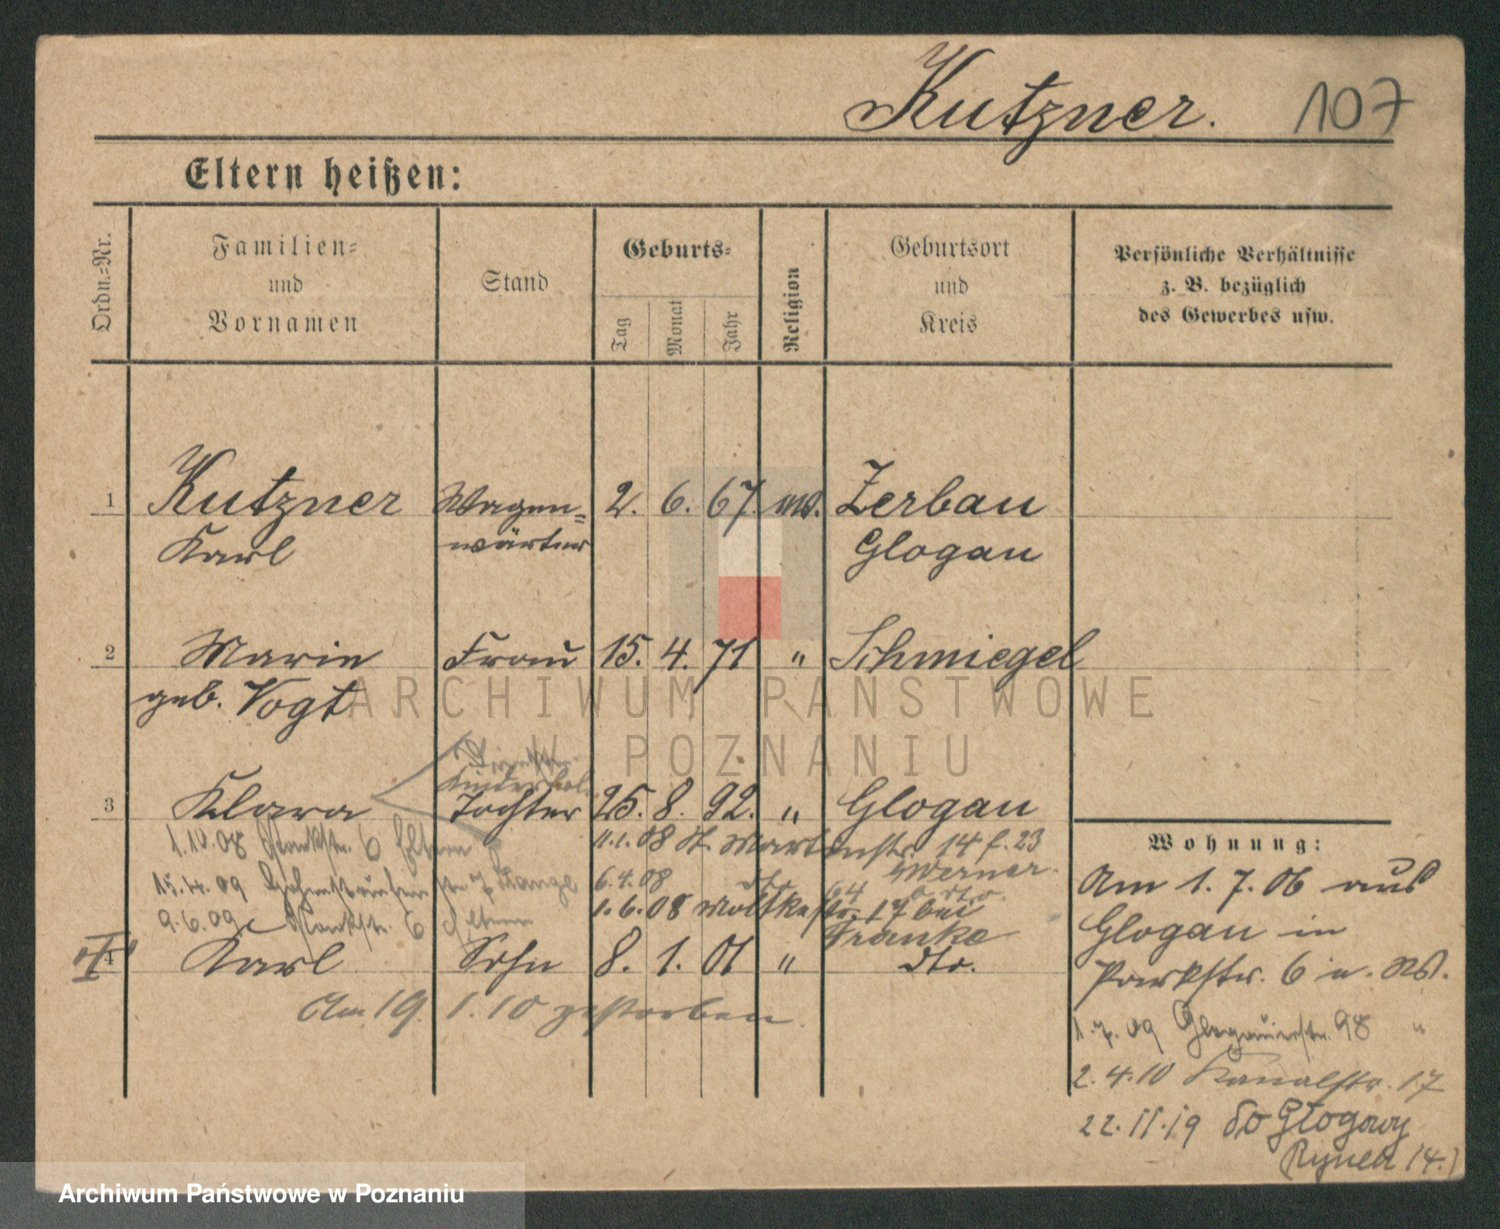 Kutzner. 107
Eltern heißen:
Ordn.-Nr.
Familien-
und
Vornamen
Stand
Geburts-
Tag
Monat
Jahr
Religion
Geburtsort
und
Kreis
Persönliche Verhältnisse
z. B. bezüglich
des Gewerbes usw.
1 Kutzner Wagen= 2. 6. 67. Zerbau
Karl wärter Glogau
2 Marie Frau 15. 4. 71 " Schmiegel
geb. Vogt
ARCHIWUM PAŃSTWOWE
W POZNANIU
3 Klara Tochter 25. 8. 92. " Glogau
1.10.08 Parkstr. 6 Eltern
11.1.08 St. Martinstr. 14 f. 23
Werner.
15.4.09
6.4.08 dto
9.6.09 Parkstr. 6 Eltern
1.6.08 Moltkestr. 17 bei
Franke
4 Karl Sohn 8. 1. 01 " dto.
Am 19. 1. 10 gestorben.
Wohnung:
Am 1. 7. 06 aus
Glogau in
Parkstr. 6 u.
1.7.09 Glogauerstr. 98 "
2.4.10 Kanalstr. 17
22.11.19 do Głogowy
Rynek 14.)
Archiwum Państwowe w Poznaniu